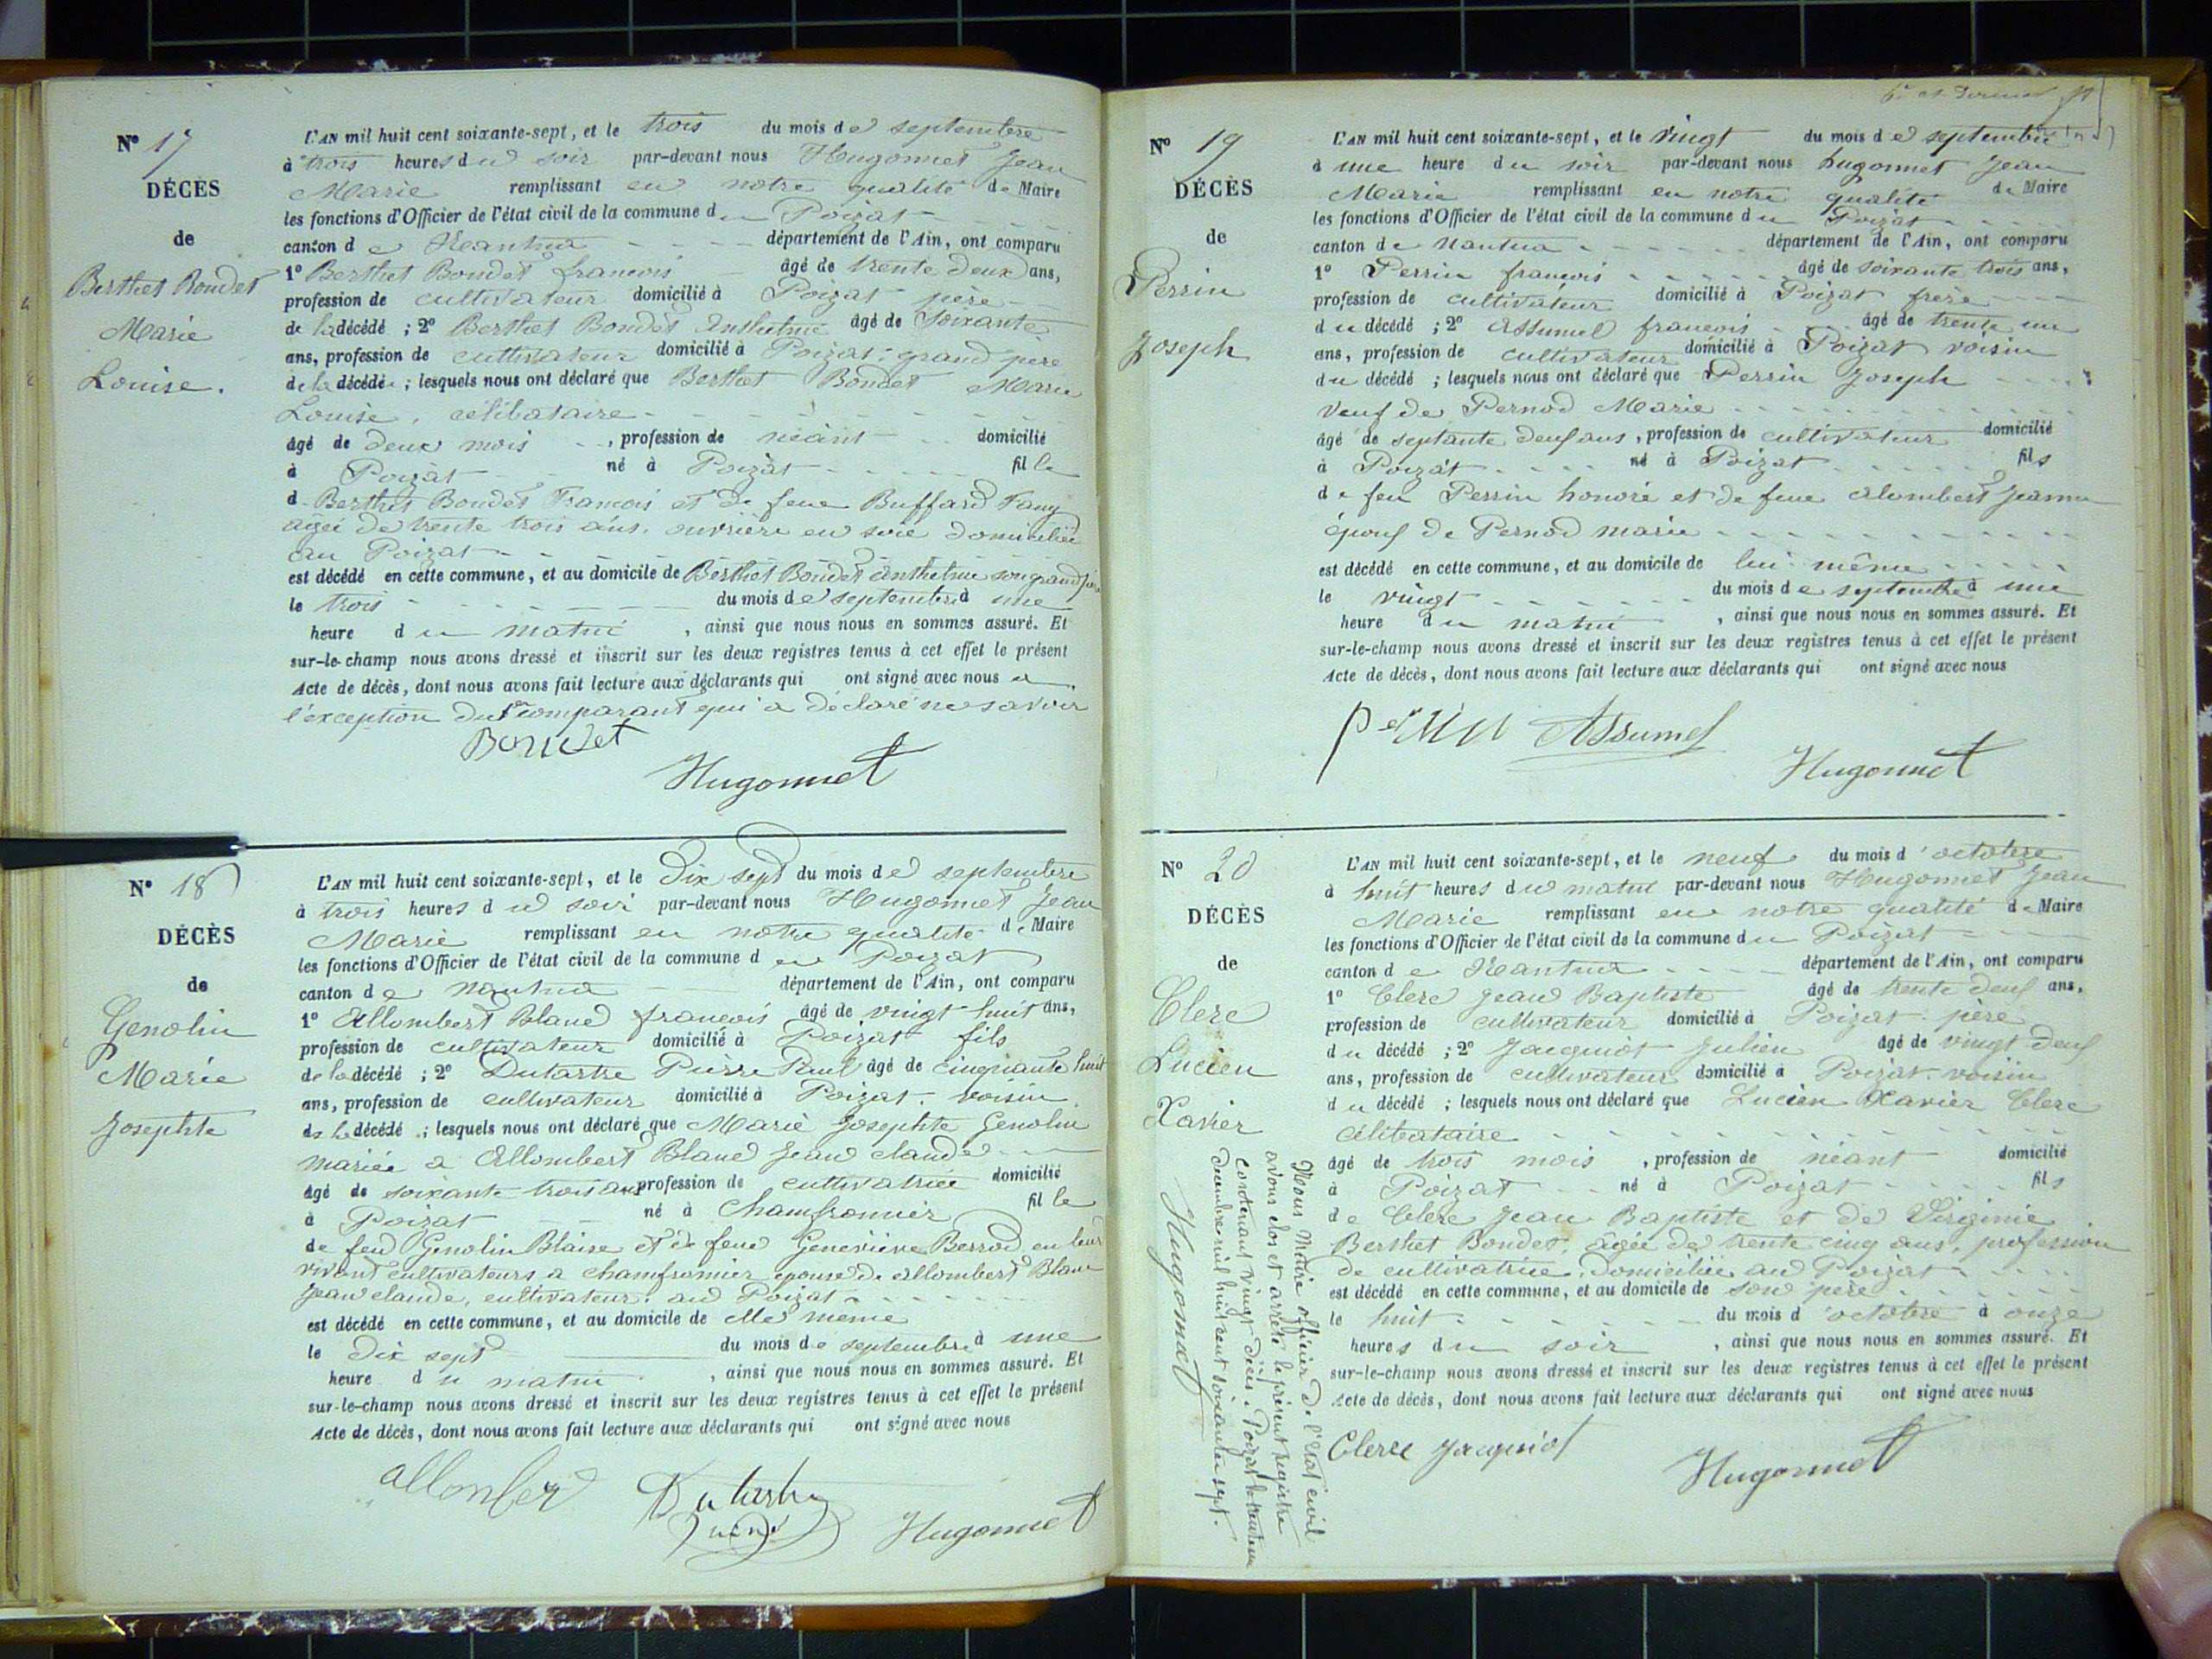 Nº 17
DÉCÈS
de
Berthet Bondet
Marie
Louise.
L'AN mil huit cent soixante-sept, et le trois du mois de septembre
à trois heures du soir par-devant nous Hugonnet Jean
Marie remplissant en notre qualité de Maire
les fonctions d'Officier de l'état civil de la commune du Poizat
canton de Nantua département de l'Ain, ont comparu
1º Berthet Bondet francois âgé de trente deux ans,
profession de cultivateur domicilié à Poizat père
de la décédé ; 2º Berthet Bondet Anthelme âgé de Soixante
ans, profession de cultivateur domicilié à Poizat grand père
de la décédée ; lesquels nous ont déclaré que Berthet Bondet Marie
Louise, célibataire
âgé de deux mois , profession de néant domicilié
à Poizat né à Poizat fille
d. Berthet Bondet Francois et de feue Buffard Fany
agée de trente trois ans, ouvrière en soie domiciliée
au Poizat
est décédé en cette commune, et au domicile de Berthet Bondet Anthelme son grand père
le trois du mois de septembre à une
heure du matin , ainsi que nous nous en sommes assuré. Et
sur-le-champ nous avons dressé et inscrit sur les deux registres tenus à cet effet le présent
Acte de décès, dont nous avons fait lecture aux déclarants qui ont signé avec nous a
l'exception du 1er comparant qui a déclaré ne savoir
Bondet
Hugonnet
Nº 18
DÉCÈS
de
Genolin
Marie
Josephte
L'AN mil huit cent soixante-sept, et le Dix sept du mois de septembre
à trois heures du soir par-devant nous Hugonnet Jean
Marie remplissant en notre qualité de Maire
les fonctions d'Officier de l'état civil de la commune du Poizat
canton de Nantua département de l'Ain, ont comparu
1º Allombert Blanc francois âgé de vingt huit ans,
profession de cultivateur domicilié à Poizat fils
de la décédé ; 2º Dutartre Pierre Paul âgé de cinquante huit
ans, profession de cultivateur domicilié à Poizat. voisin
de la décédé ; lesquels nous ont déclaré que Marie Josephte Genolin
mariée a Allombert Blanc Jean claude
âgé de soixante trois ans profession de cultivatrice domicilié
à Poizat né à Chamfromier fille
de feu Genolin Blaise et de feue Geneviève Berrod en leur
vivant cultivateurs a chamfromier épouse de allombert Blanc
Jean claude, cultivateur. au Poizat
est décédé en cette commune, et au domicile de elle meme
le dix sept du mois de septembre à une
heure du matin , ainsi que nous nous en sommes assuré. Et
sur-le-champ nous avons dressé et inscrit sur les deux registres tenus à cet effet le présent
Acte de décès, dont nous avons fait lecture aux déclarants qui ont signé avec nous
allomber Dutartre
Hugonnet
Nº 19
DÉCÈS
de
Perrin
Joseph
L'AN mil huit cent soixante-sept, et le vingt du mois de septembre
à une heure du soir par-devant nous hugonnet Jean
Marie remplissant en notre qualité de Maire
les fonctions d'Officier de l'état civil de la commune du Poizat
canton de Nantua département de l'Ain, ont comparu
1º Perrin francois âgé de soixante trois ans,
profession de cultivateur domicilié à Poizat frère
du décédé ; 2º Assumel francois âgé de trente un
ans, profession de cultivateur domicilié à Poizat voisin
du décédé ; lesquels nous ont déclaré que Perrin Joseph
veuf de Pernod Marie
âgé de septante deux ans, profession de cultivateur domicilié
à Poizat né à Poizat fils
de feu Perrin honoré et de feue alombert Jeanne
époux de Pernod marie
est décédé en cette commune, et au domicile de lui même
le vingt du mois de septembre à une
heure du matin , ainsi que nous nous en sommes assuré. Et
sur-le-champ nous avons dressé et inscrit sur les deux registres tenus à cet effet le présent
Acte de décès, dont nous avons fait lecture aux déclarants qui ont signé avec nous
perrin Assumel
Hugonnet
Nº 20
DÉCÈS
de
Clerc
Lucien
Xavier
L'AN mil huit cent soixante-sept, et le neuf du mois d'octobre
à huit heures du matin par-devant nous Hugonnet Jean
Marie remplissant en notre qualité de Maire
les fonctions d'Officier de l'état civil de la commune du Poizat
canton de Nantua département de l'Ain, ont comparu
1º Clerc Jean Baptiste âgé de trente deux ans,
profession de cultivateur domicilié à Poizat. père
du décédé ; 2º Jacquiot Julien âgé de vingt deux
ans, profession de cultivateur domicilié à Poizat. voisin
du décédé ; lesquels nous ont déclaré que Lucien Xavier Clerc
célibataire
âgé de trois mois , profession de néant domicilié
à Poizat né à Poizat fils
de Clerc Jean Baptiste et de Virginie
Berthet Bondet, âgée de trente cinq ans, profession
de cultivatrice, domiciliée au Poizat
est décédé en cette commune, et au domicile de son père
le huit du mois d'octobre à onze
heures du soir , ainsi que nous nous en sommes assuré. Et
sur-le-champ nous avons dressé et inscrit sur les deux registres tenus à cet effet le présent
Acte de décès, dont nous avons fait lecture aux déclarants qui ont signé avec nous
Clerc Jacquiot
Hugonnet
Nous Maire officier de l'Etat civil
avons clos et arrêté le présent registre
contenant vingt décès. Poizat le trente un
decembre mil huit cent soixante sept.
Hugonnet